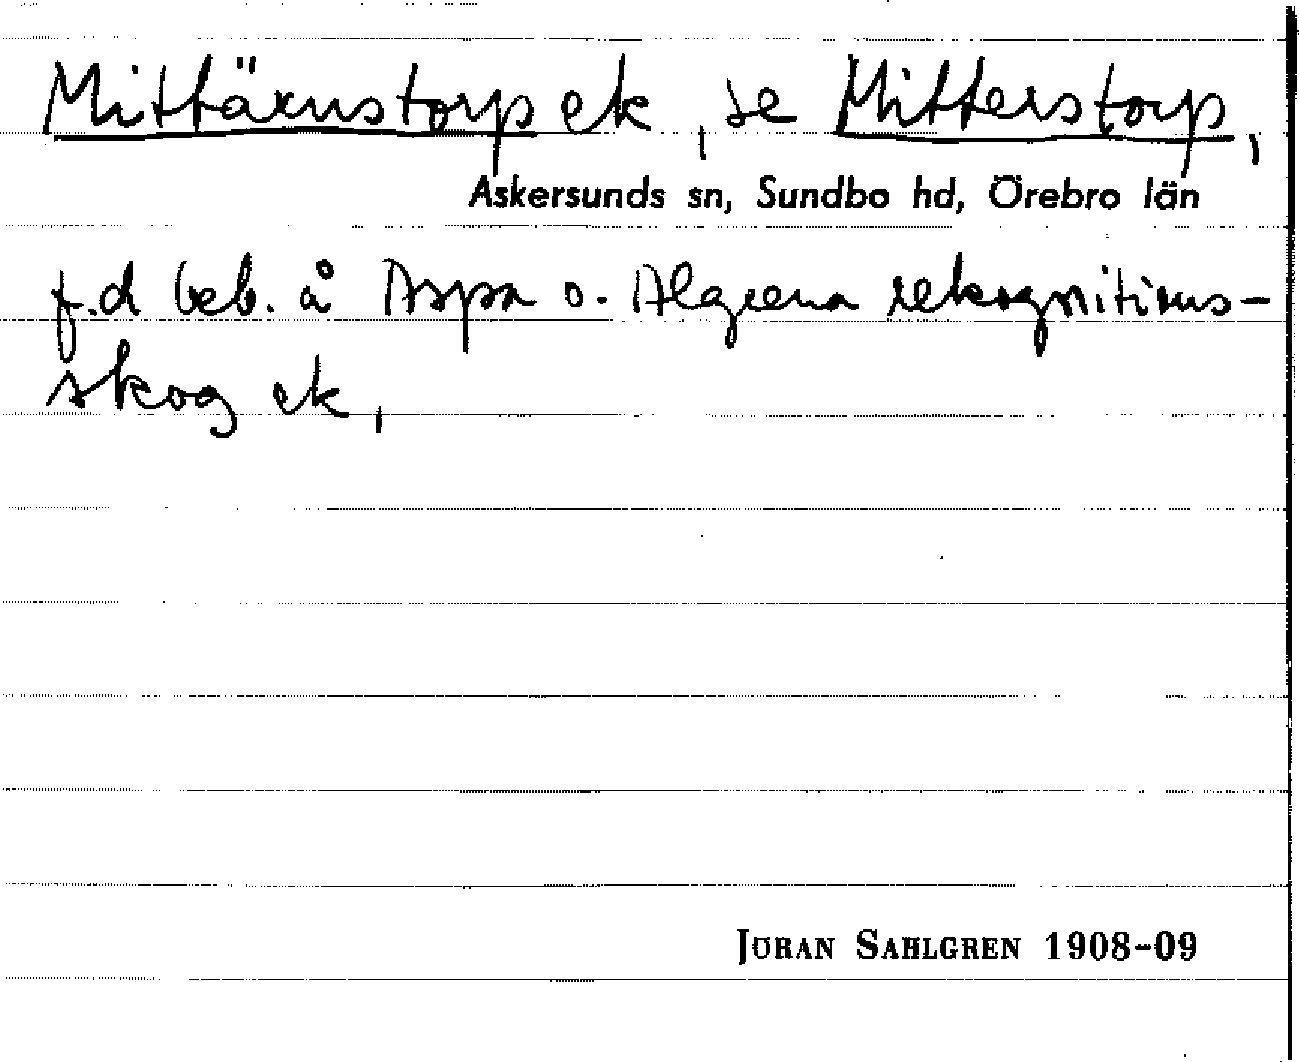 Mittärnstorp ek, se Mitterstorp,
Askersunds sn, Sundbo hd, Örebro län
f.d beb. å Aspa o. Algrena rekognitions-
skog ek,
JÖRAN SAHLGREN 1908-09